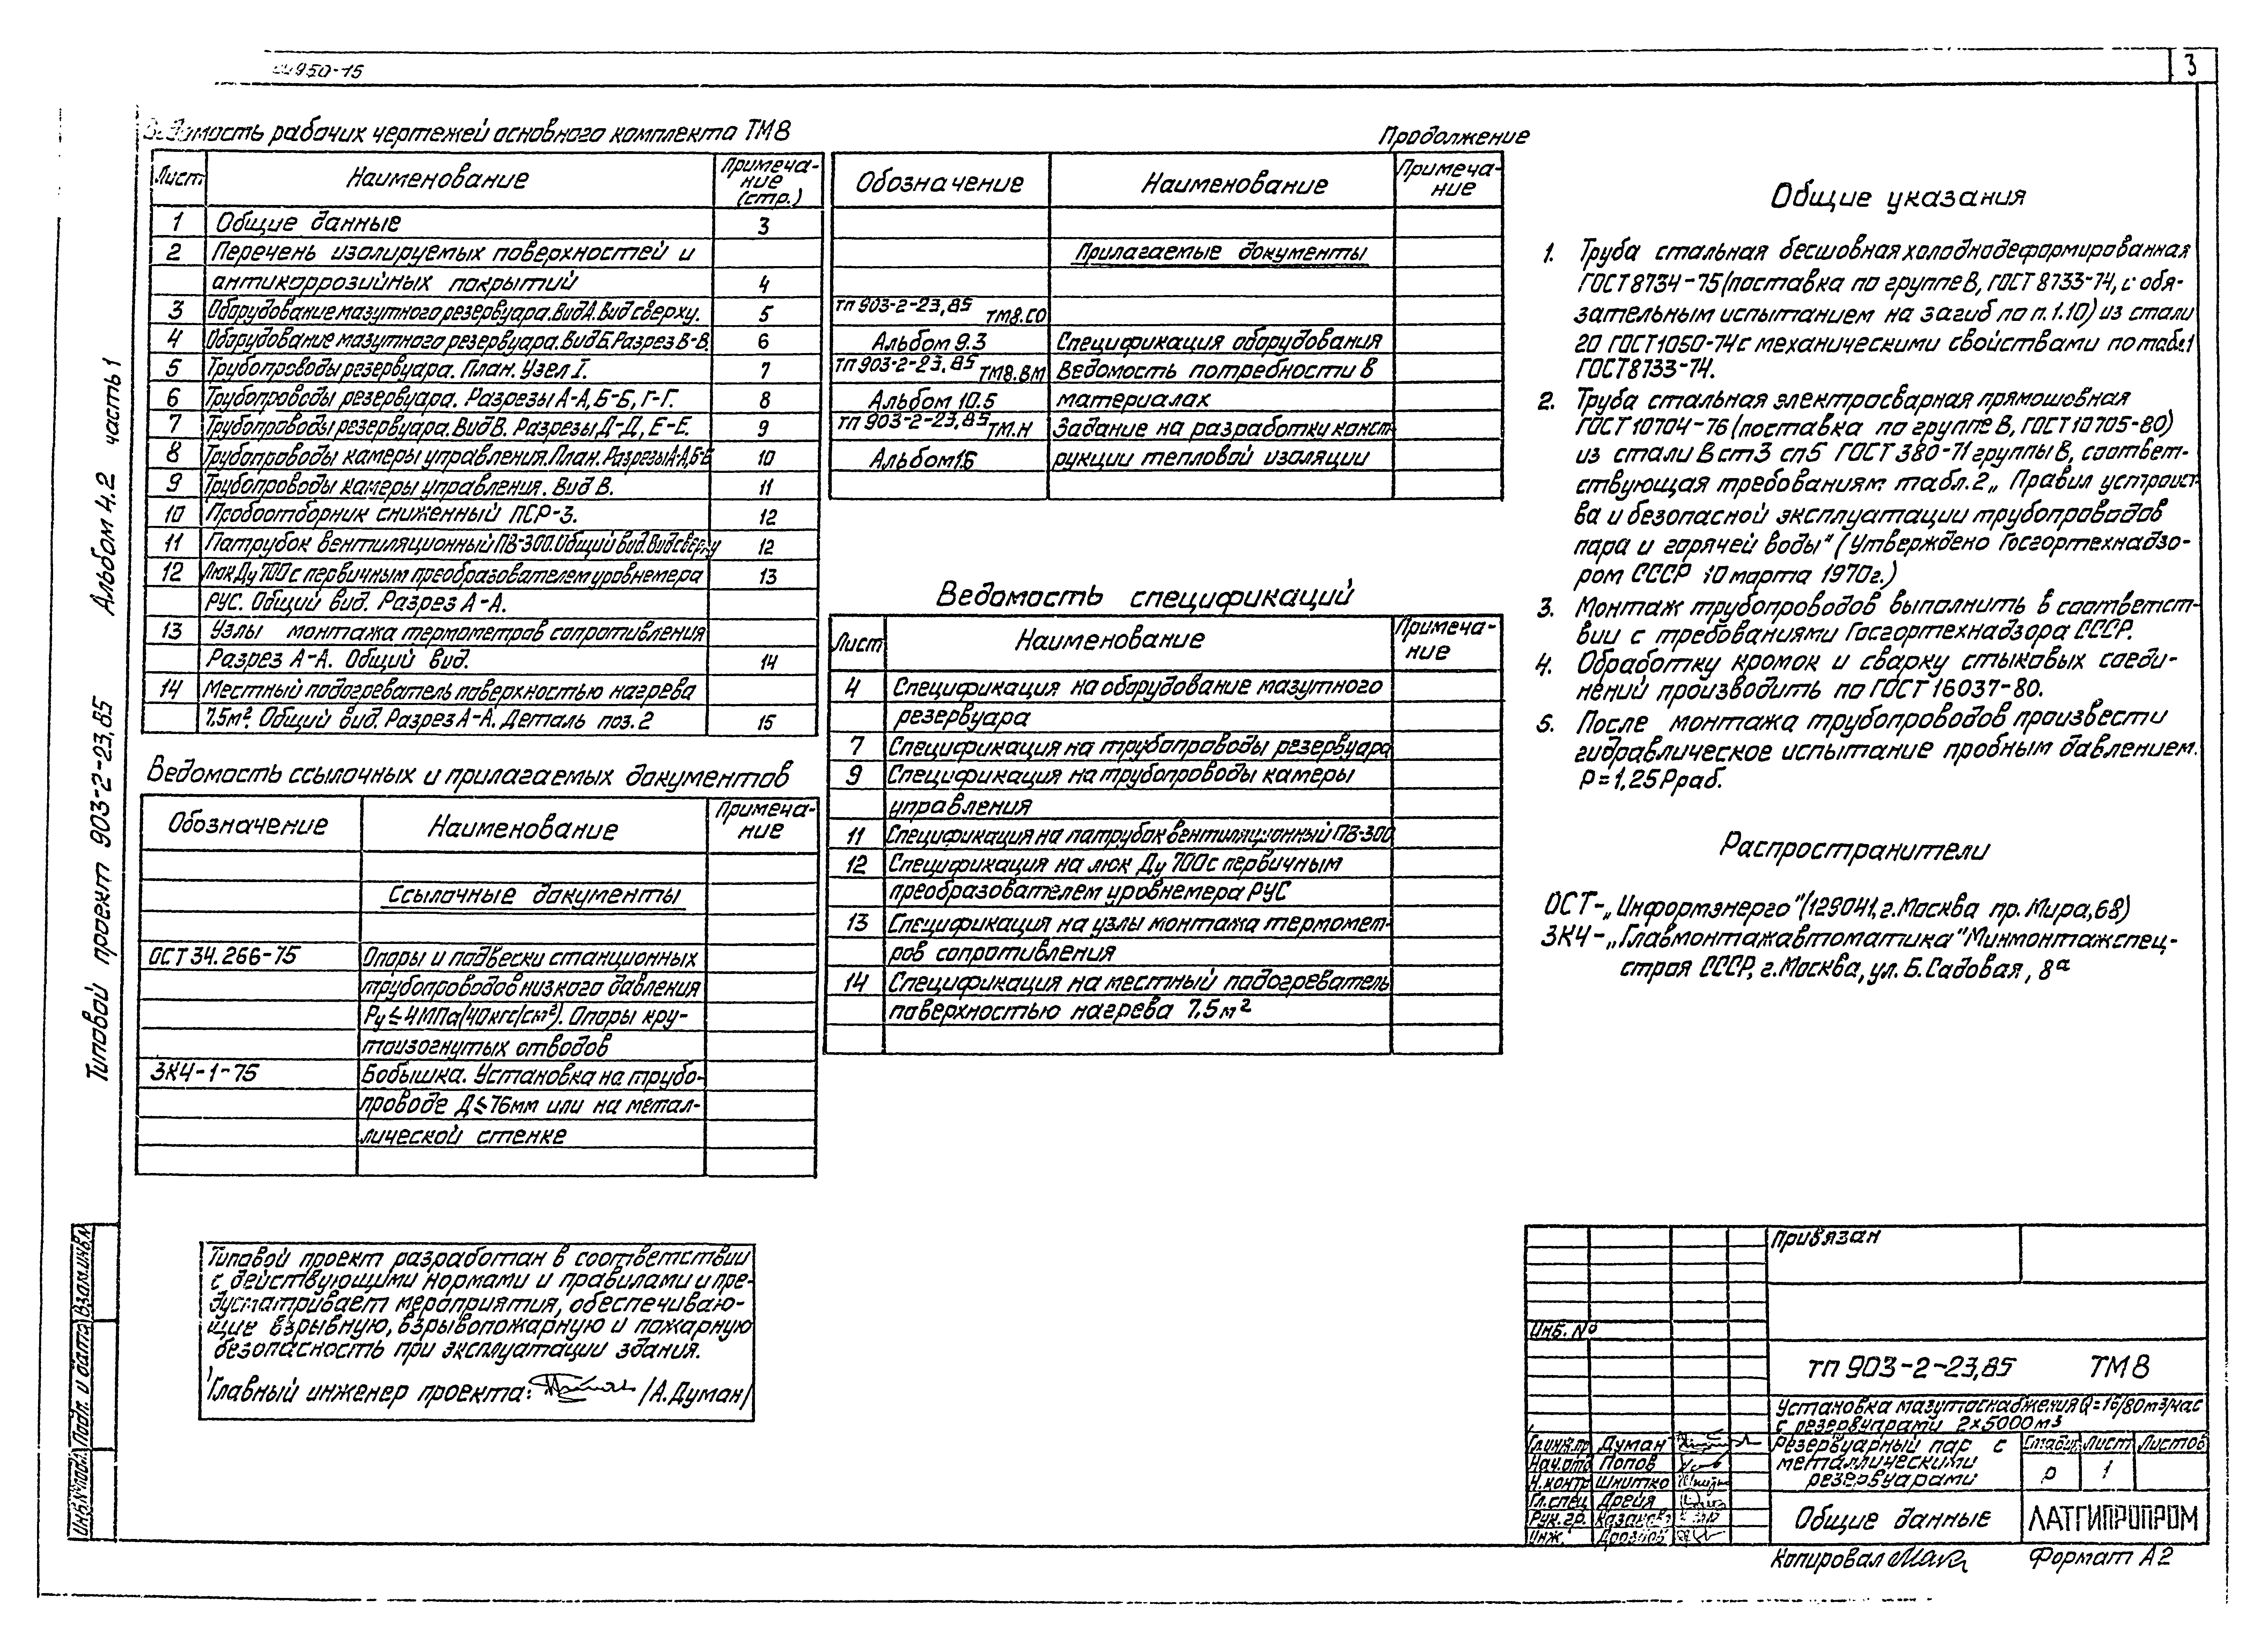 3
Ведомость рабочих чертежей основного комплекта ТМ8
Лист Наименование Примеча-
ние
(стр.)
1 Общие данные 3
2 Перечень изолируемых поверхностей и
антикоррозийных покрытий 4
3 Оборудование мазутного резервуара. Вид А. Вид сверху. 5
4 Оборудование мазутного резервуара. Вид Б. Разрез В-В. 6
5 Трубопроводы резервуара. План. Узел I. 7
6 Трубопроводы резервуара. Разрезы А-А, Б-Б, Г-Г. 8
7 Трубопроводы резервуара. Вид В. Разрезы Д-Д, Е-Е. 9
8 Трубопроводы камеры управления. План. Разрезы А-А, Б-Б 10
9 Трубопроводы камеры управления. Вид В. 11
10 Пробоотборник сниженный ПСР-3. 12
11 Патрубок вентиляционный ПВ-300. Общий вид. Вид сверху 12
12 Люк Ду 700 с первичным преобразователем уровнемера 13
РУС. Общий вид. Разрез А-А.
13 Узлы монтажа термометров сопротивления
Разрез А-А. Общий вид. 14
14 Местный подогреватель поверхностью нагрева
7,5м². Общий вид. Разрез А-А. Деталь поз. 2 15
Ведомость ссылочных и прилагаемых документов
Обозначение Наименование Примеча-
ние
Ссылочные документы
ОСТ 34.266-75 Опоры и подвески станционных
трубопроводов низкого давления
Ру ≤ 4МПа (40кгс/см²). Опоры кру-
тоизогнутых отводов
ЗК4-1-75 Бобышка. Установка на трубо-
проводе Д ≤ 76мм или на метал-
лической стенке
Типовой проект разработан в соответствии
с действующими нормами и правилами и пре-
дусматривает мероприятия, обеспечиваю-
щие взрывную, взрывопожарную и пожарную
безопасность при эксплуатации здания.
Главный инженер проекта: /А.Думан/
Продолжение
Обозначение Наименование Примеча-
ние
Прилагаемые документы
ТП 903-2-23,85 ТМ8.СО
Альбом 9.3 Спецификация оборудования
ТП 903-2-23,85 ТМ8.ВМ Ведомость потребности в
Альбом 10.5 материалах
ТП 903-2-23,85 ТМ.Н Задание на разработку конст-
Альбом 1.6 рукции тепловой изоляции
Ведомость спецификаций
Лист Наименование Примеча-
ние
4 Спецификация на оборудование мазутного
резервуара
7 Спецификация на трубопроводы резервуара
9 Спецификация на трубопроводы камеры
управления
11 Спецификация на патрубок вентиляционный ПВ-300
12 Спецификация на люк Ду 700с первичным
преобразователем уровнемера РУС
13 Спецификация на узлы монтажа термомет-
ров сопротивления
14 Спецификация на местный подогреватель
поверхностью нагрева 7,5м²
Общие указания
1. Труба стальная бесшовная холоднодеформированная
ГОСТ 8734-75 (поставка по группе В, ГОСТ 8733-74, с обя-
зательным испытанием на загиб по п. 1.10) из стали
20 ГОСТ 1050-74 с механическими свойствами по табл. 1
ГОСТ 8733-74.
2. Труба стальная электросварная прямошовная
ГОСТ 10704-76 (поставка по группе В, ГОСТ 10705-80)
из стали В ст3 сп5 ГОСТ 380-71 группы В, соответ-
ствующая требованиям табл. 2 „Правил устройст-
ва и безопасной эксплуатации трубопроводов
пара и горячей воды" (Утверждено Госгортехнадзо-
ром СССР 10 марта 1970г.)
3. Монтаж трубопроводов выполнить в соответст-
вии с требованиями Госгортехнадзора СССР.
4. Обработку кромок и сварку стыковых соеди-
нений производить по ГОСТ 16037-80.
5. После монтажа трубопроводов произвести
гидравлическое испытание пробным давлением.
Р = 1,25 Рраб.
Распространители
ОСТ-„Информэнерго" (129041, г. Москва пр. Мира, 68)
ЗК4-„Главмонтажавтоматика" Минмонтажспец-
строя СССР, г. Москва, ул. Б. Садовая, 8а
Типовой проект 903-2-23,85 Альбом 4.2 часть 1
Инв.№подл. Подп. и дата Взам.инв.№
Привязан
Инв. №
ТП 903-2-23,85 ТМ8
Установка мазутоснабжения Q=16/80м3/час
с резервуарами 2×5000м3
Гл.инж.пр Думан
Нач.отд Попов
Н.контр Шнитко
Гл.спец Дрейя
Рук.гр.
Инж.
Резервуарный парк с
металлическими
резервуарами
Стадия Лист Листов
р 1
Общие данные
ЛАТГИПРОПРОМ
Копировал
Формат А2